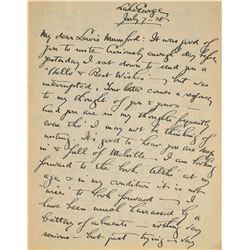 Lake George
July 9 - 28
My dear Lewis Mumford: It was good of
you to write. Curiously enough day before
yesterday I sat down to send you a
"Hello & Best Wishes" — but was
interrupted. Your letter comes a response
to my thought of you & yours.
You are in my thoughts frequently
even tho' I may not be thinking of
writing. It's good to hear you are
in & full of Melville. I am looking
forward to the book. Altho' at my
age & in my condition it is not
wise to look forward — I
have been much harassed by a
battery of ailments — nothing very
serious — but just trying — day